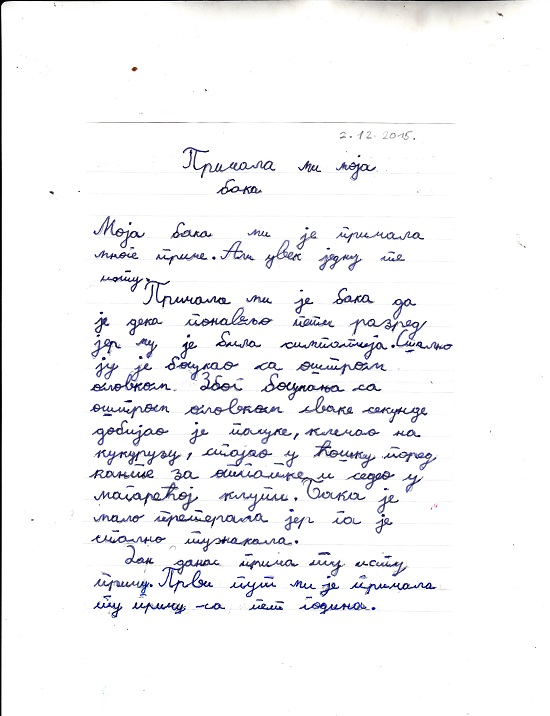 2.12.2015.
Причала ми моја
бака
Моја бака ми је причала
многе приче. Али увек једну те
исту.
Причала ми је бака да
је дека понављо пети разред
јер му је била симпатија. Стално
ју је боцкао са оштром
оловком. Због боцкања са
оштром оловком сваке секунде
добијао је памуке, клечао на
кукурузу, стајао у ћошку поред
канте за отпатке и седео у
магарећој клупи. Бака је
мало претерала јер га је
стално тужакала.
Дан данас прича ту исту
причу. Први пут ми је причала
ту причу са пет година.